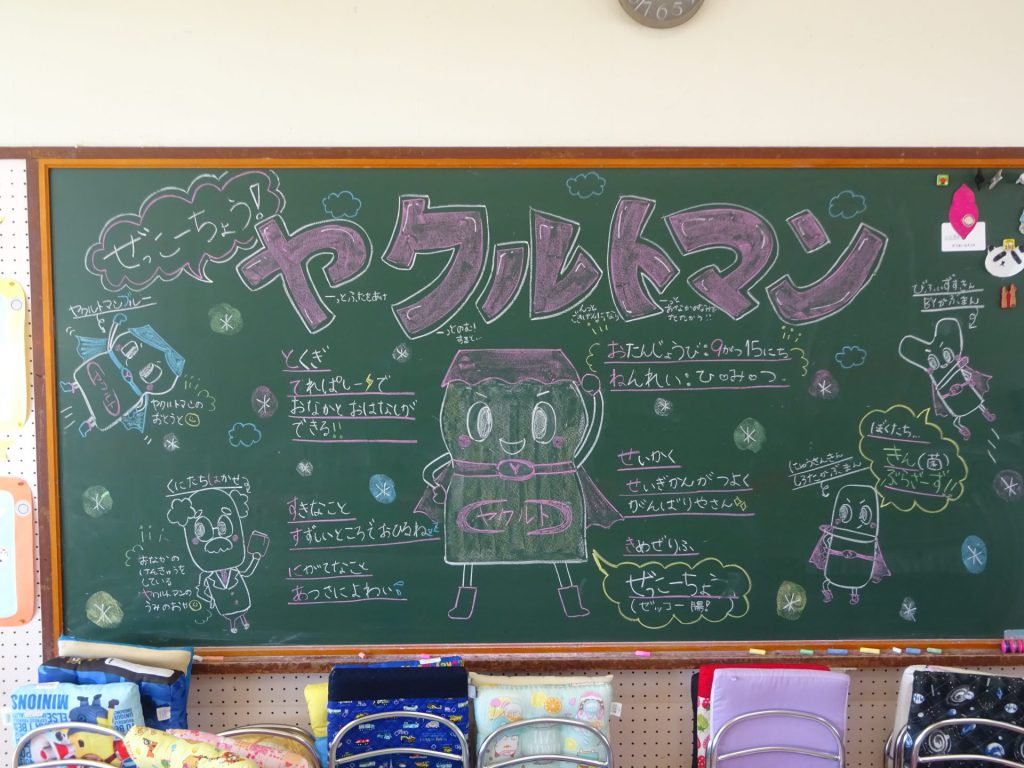 ぜっこーちょう!
ヤクルトマン
ーっとふたをあけ
ーっとのむ!
ヤクルトマンブルー
ヤクルトマンの
おとうと
くにたちはかせ
おなかの
けんきゅうを
している
ヤクルトマンの
うみのおや
とくぎ
てれぱしーで
おなかと おはなしが
できる!!
すきなこと
すずしいところでおひるね
にがてなこと
あつさによわい
ヤクルト
おたんじょうび:9がつ15にち
ねんれい:ひ・み・つ
せいかく
せいぎかんがつよく
がんばりやさん
きめぜりふ
ぜっこーちょー
(ゼッコー腸!)
BYかふまん
ぼくたち...
きん(菌)
ぶらざーず!!
にゅうさんきん
しろたかぶまん
MINIONS